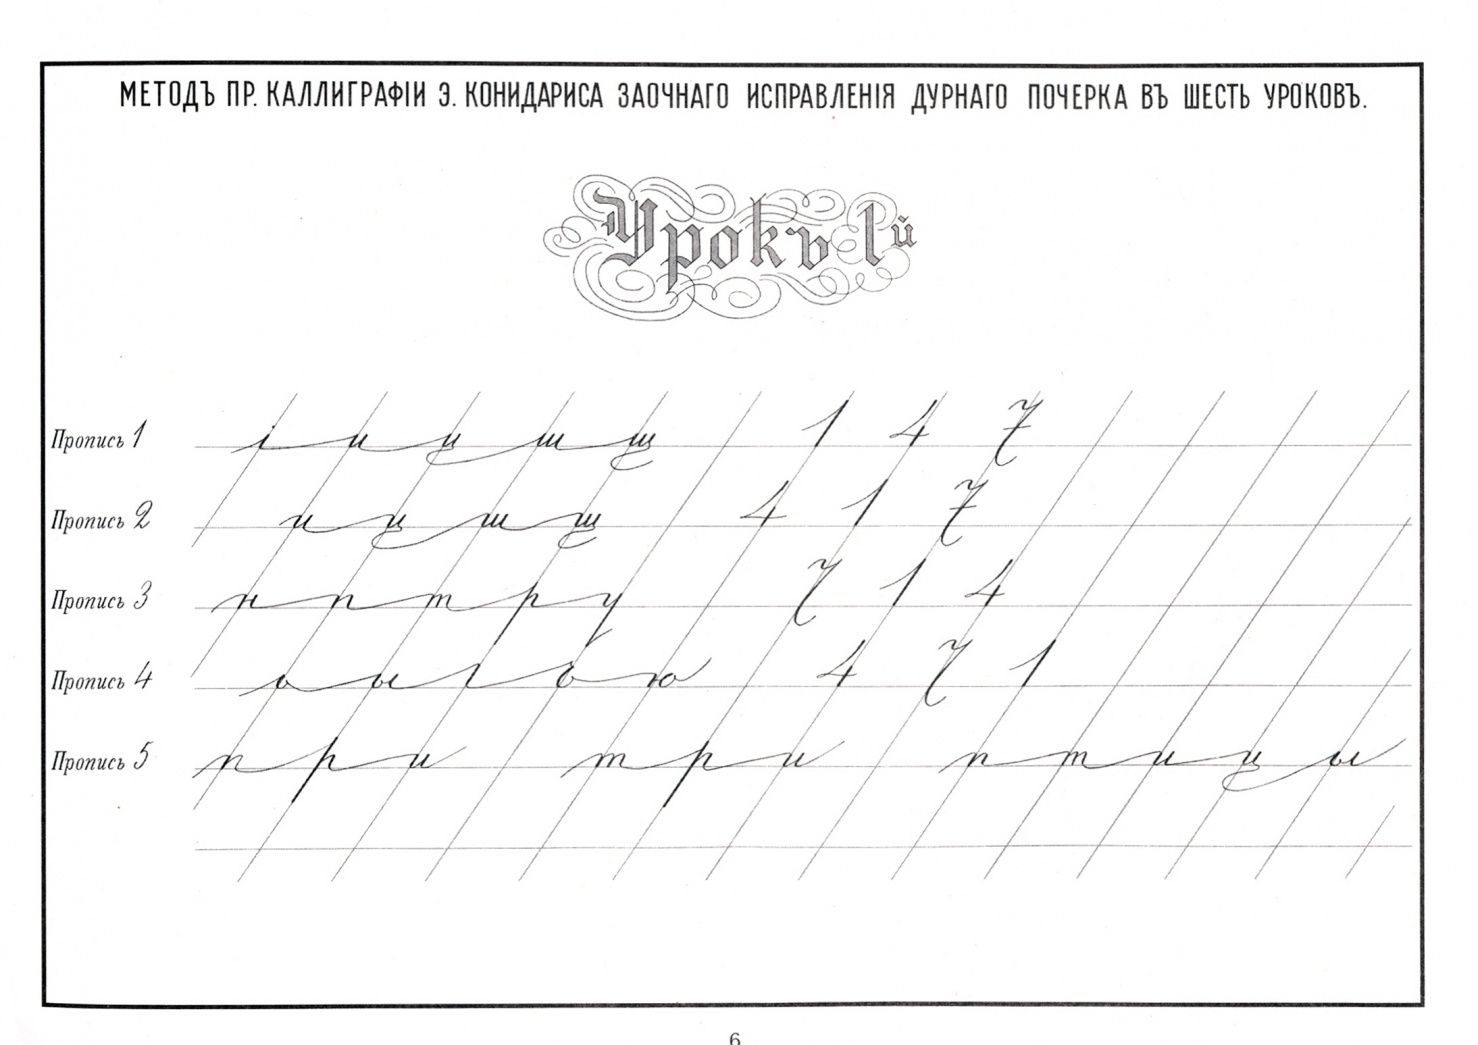 МЕТОДЪ ПР. КАЛЛИГРАФІИ Э. КОНИДАРИСА ЗАОЧНАГО ИСПРАВЛЕНІЯ ДУРНАГО ПОЧЕРКА ВЪ ШЕСТЬ УРОКОВЪ.
Урокъ 1й
Пропись 1 і и ц ш щ 1 4 7
Пропись 2 и ц ш щ 4 1 7
Пропись 3 н п т р у 7 1 4
Пропись 4 ь ы ѣ ю 4 7 1
Пропись 5 при три птицы
6